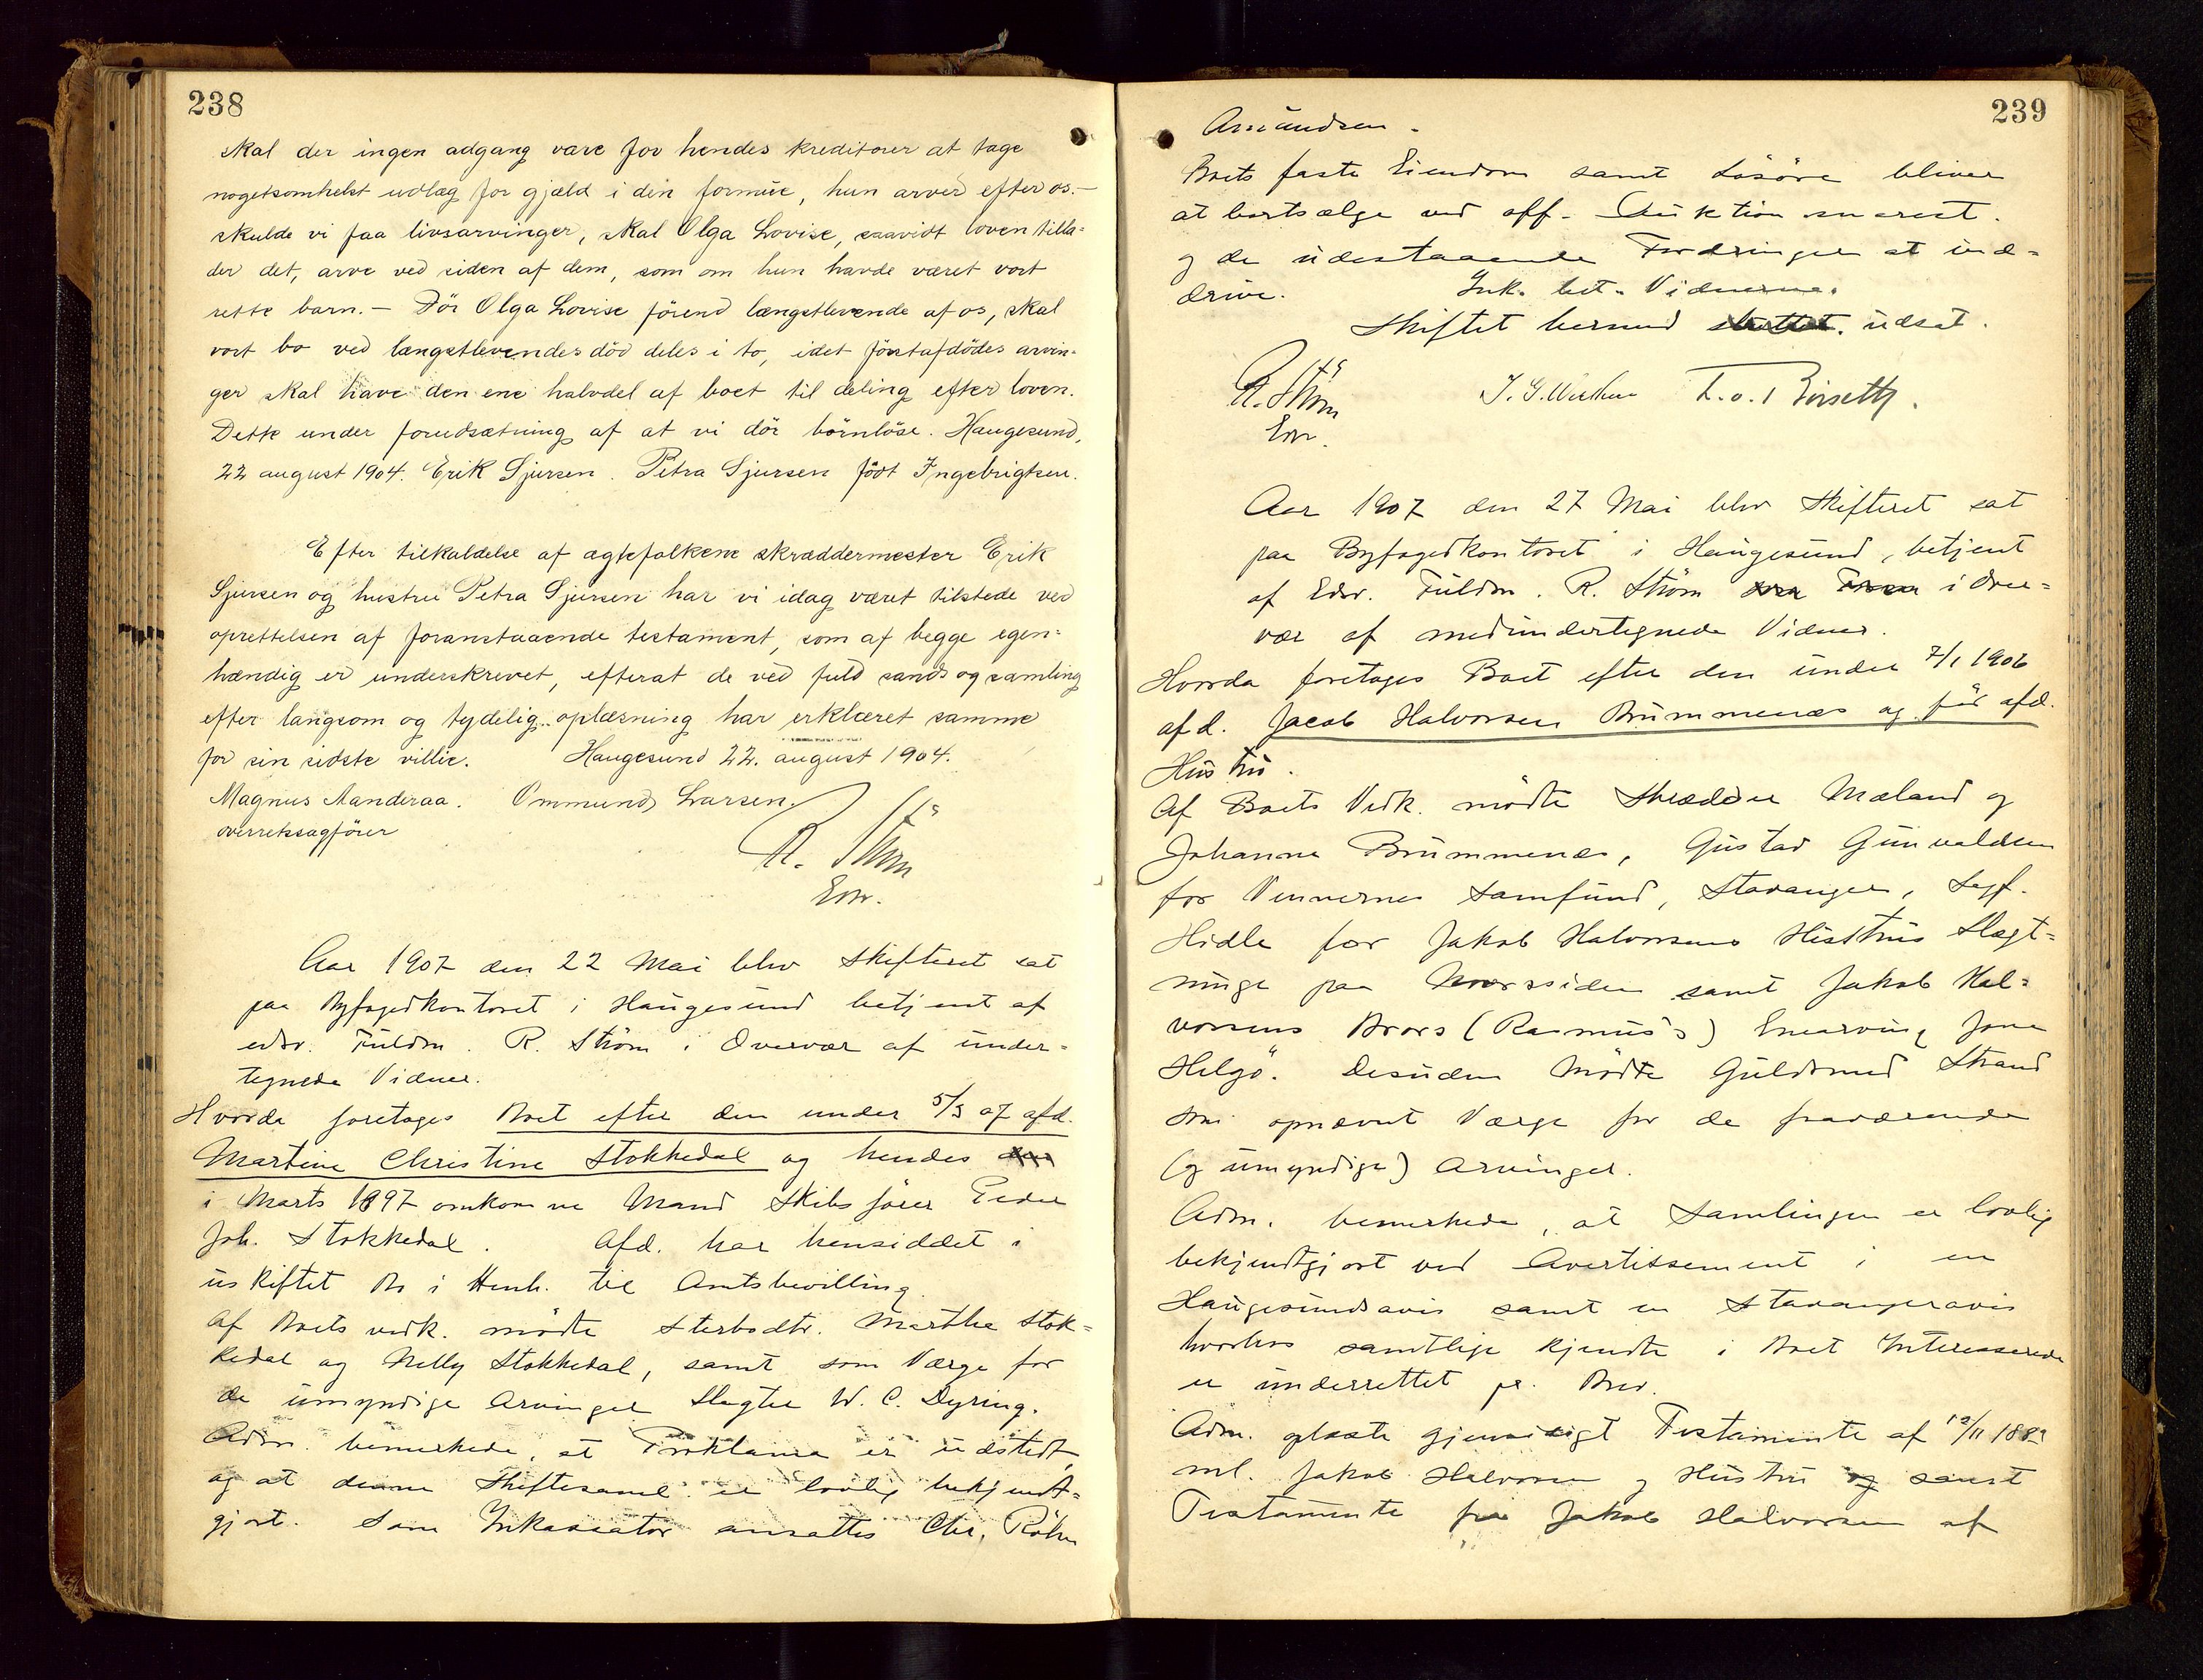 238
skal der ingen adgang være for hendes kreditorer at tage
nogetsomhelst udlæg for gjæld i den formue, hun arver efter os.—
skulde vi faa livsarvinger, skal Olga Lovise, saavidt loven tilla=
der det, arve ved siden af dem, som om hun havde været vort
rette barn.— Dör Olga Lovise förend længstlevende af os, skal
vort bo ved længstlevendes död deles i to, idet förstafdödes arvin=
ger skal have den ene halvdel af boet til deling efter loven.
Dette under forudsætning af at vi dör börnlöse. Haugesund,
22 august 1904. Erik Sjursen. Petra Sjursen födt Ingebrigtsen.
Efter tilkaldelse af ægtefolkene skræddermester Erik
Sjursen og hustru Petra Sjursen har vi idag været tilstede ved
oprettelsen af foranstaaende testament, som af begge egen=
hændig er underskrevet, efterat de ved fuld sands og samling
efter langsom og tydelig oplæsning har erklæret samme
for sin sidste villie. Haugesund 22. august 1904.
Magnus Aanderaa. Ommund Larsen.
overretssagförer
R. Ström
Edsv.
Aar 1907 den 22 Mai blev Skifteret sat
paa Byfogedkontoret i Haugesund betjent af
edsv. Fuldm. R. Ström i Overvær af under=
tegnede Vidner.
Hvorda foretages Boet efter den under 5/3 07 afd.
Martine Christine Stokkedal og hendes
i Marts 1897 omkomne Mand Skibsförer Peder
Joh. Stokkedal. Afd. har hensiddet i
uskiftet Bo i Henh. til Amtsbevilling.
Af Boets vedk. mödte Sterbodtr. Marthe Stok=
kedal og Nelly Stokkedal, samt som Værge for
de umyndige Arvinger Slagter W. C. Dyring.
Adm. bemerkede, at Proklama er udstedt,
og at denne Skiftesaml. er lovlig bekjendt=
gjort. Som Inkassator ansattes Chr. Röthe
239
Amundsen.
Boets faste Eiendom samt Lösöre bliver
at bortsælge ved off. Auktion snarest.
og de udestaaende Fordringer at ind=
drive. Ink. bet. Vidnerne.
Skiftet hermed sluttet. udsat.
R. Ström
Edsv.
Aar 1907 den 27 Mai blev Skifteret sat
paa Byfogedkontoret i Haugesund, betjent
af Edsv. Fuldm. R. Ström i Over=
vær af medundertegnede Vidner.
Hvorda foretages Boet efter den under 7/1 1906
afd. Jacob Halvorsen Brummenæs og för afd.
Hustru.
Af Boets Vedk. mödte Skrædder Mæland og
Johanne Brummenæs, Gustav Gunvaldsen
for Vennernes Samfund, Stavanger, Sagf.
Hidle for Jakob Halvorsens Hustrus Slægt=
ninge paa Morssiden samt Jakob Hal=
vorsens Brors (Rasmus's) Enearving Jone
Helgö. Desuden Mödte Guldsmed Strand
som opnævnt Værge for de fraværende
(og umyndige) Arvinger.
Adm. bemerkede, at Samlingen er lovlig
bekjendtgjort ved Avertissement i en
Haugesundsavis samt en Stavangeravis
hvorhos samtlige kjendte i Boet Interesserede
er underrettet pr. Brev.
Adm. oplæste gjensidigt Testamente af 12/11 1889
ml. Jakob Halvorsen og Hustru og samt
Testamente fra Jakob Halvorsen af